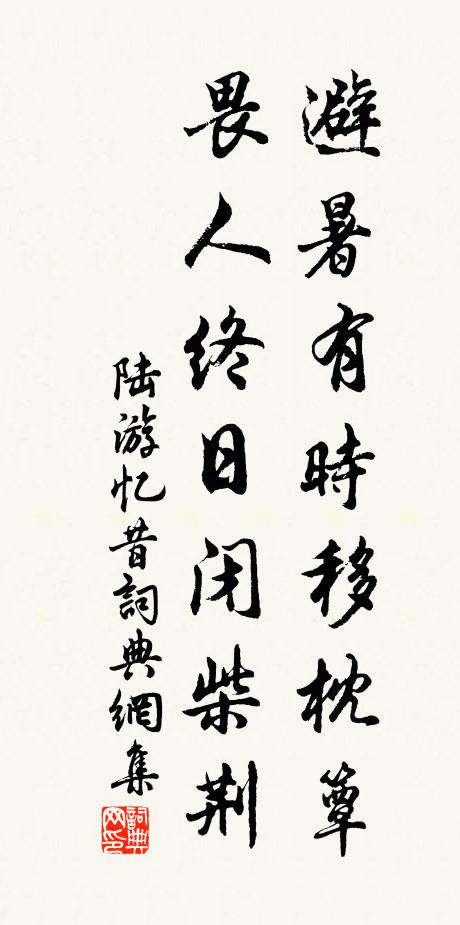 避暑有時移枕簟
畏人终日闭柴荆
陆游忆昔詞典網集
詞典网印